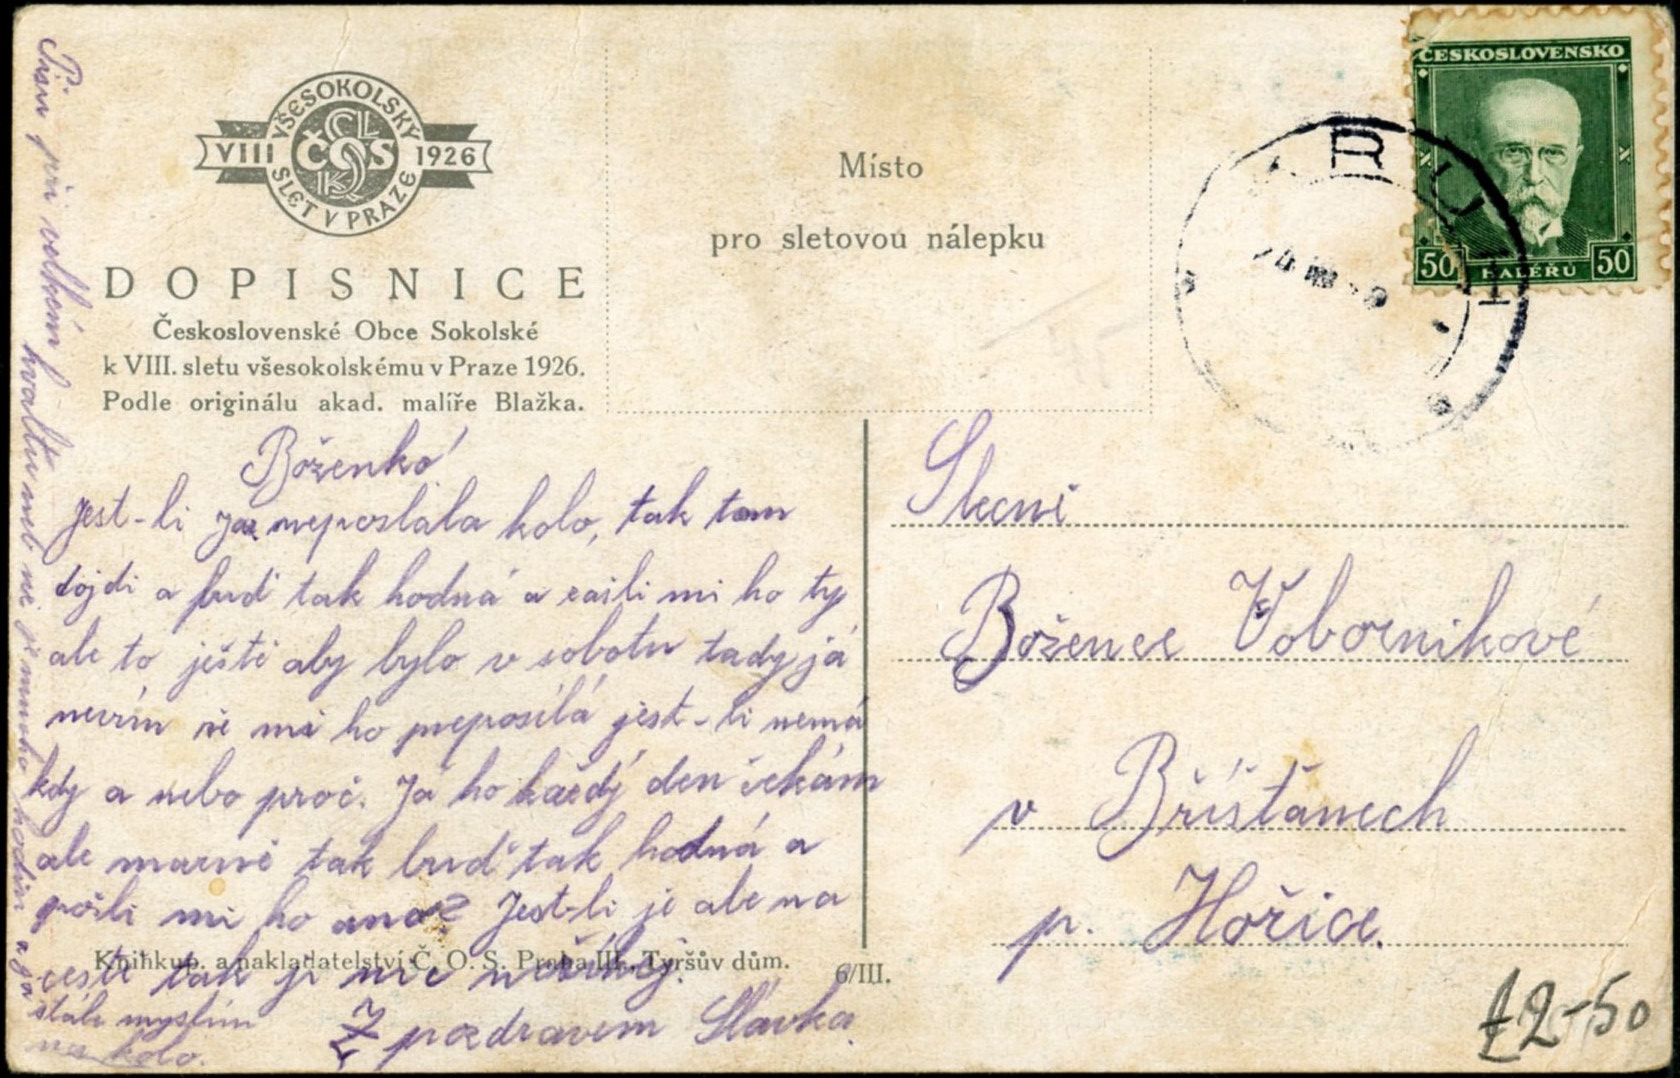 VŠESOKOLSKÝ
VIII
ČOS
1926
SLET V PRAZE
DOPISNICE
Československé Obce Sokolské
k VIII. sletu všesokolskému v Praze 1926.
Podle originálu akad. malíře Blažka.
Místo
pro sletovou nálepku
ČESKOSLOVENSKO
50 HALÉŘŮ 50
Boženko!
Jest-li neposlala kolo, tak tam
dojdi a buď tak hodná a zašli mi ho ty
ale to ještě aby bylo v sobotu tady já
nevím že mi ho neposílá jest-li nemá
kdy a nebo proč. Já ho každý den čekám
ale marně tak buď tak hodná a
pošli mi ho ano? Jest-li je ale na
cestě tak jí nic neříkej.
Z pozdravem Slávka.
Píši při velkém kvaltu neb už je mnoho hodin a já
stále myslím
na kolo.
Knihkup. a nakladatelství Č. O. S. Praha III. Tyršův dům.
6/III.
Slecně
Božence Vobornikové
v Bříšťanech
p. Hořice.
£2-50